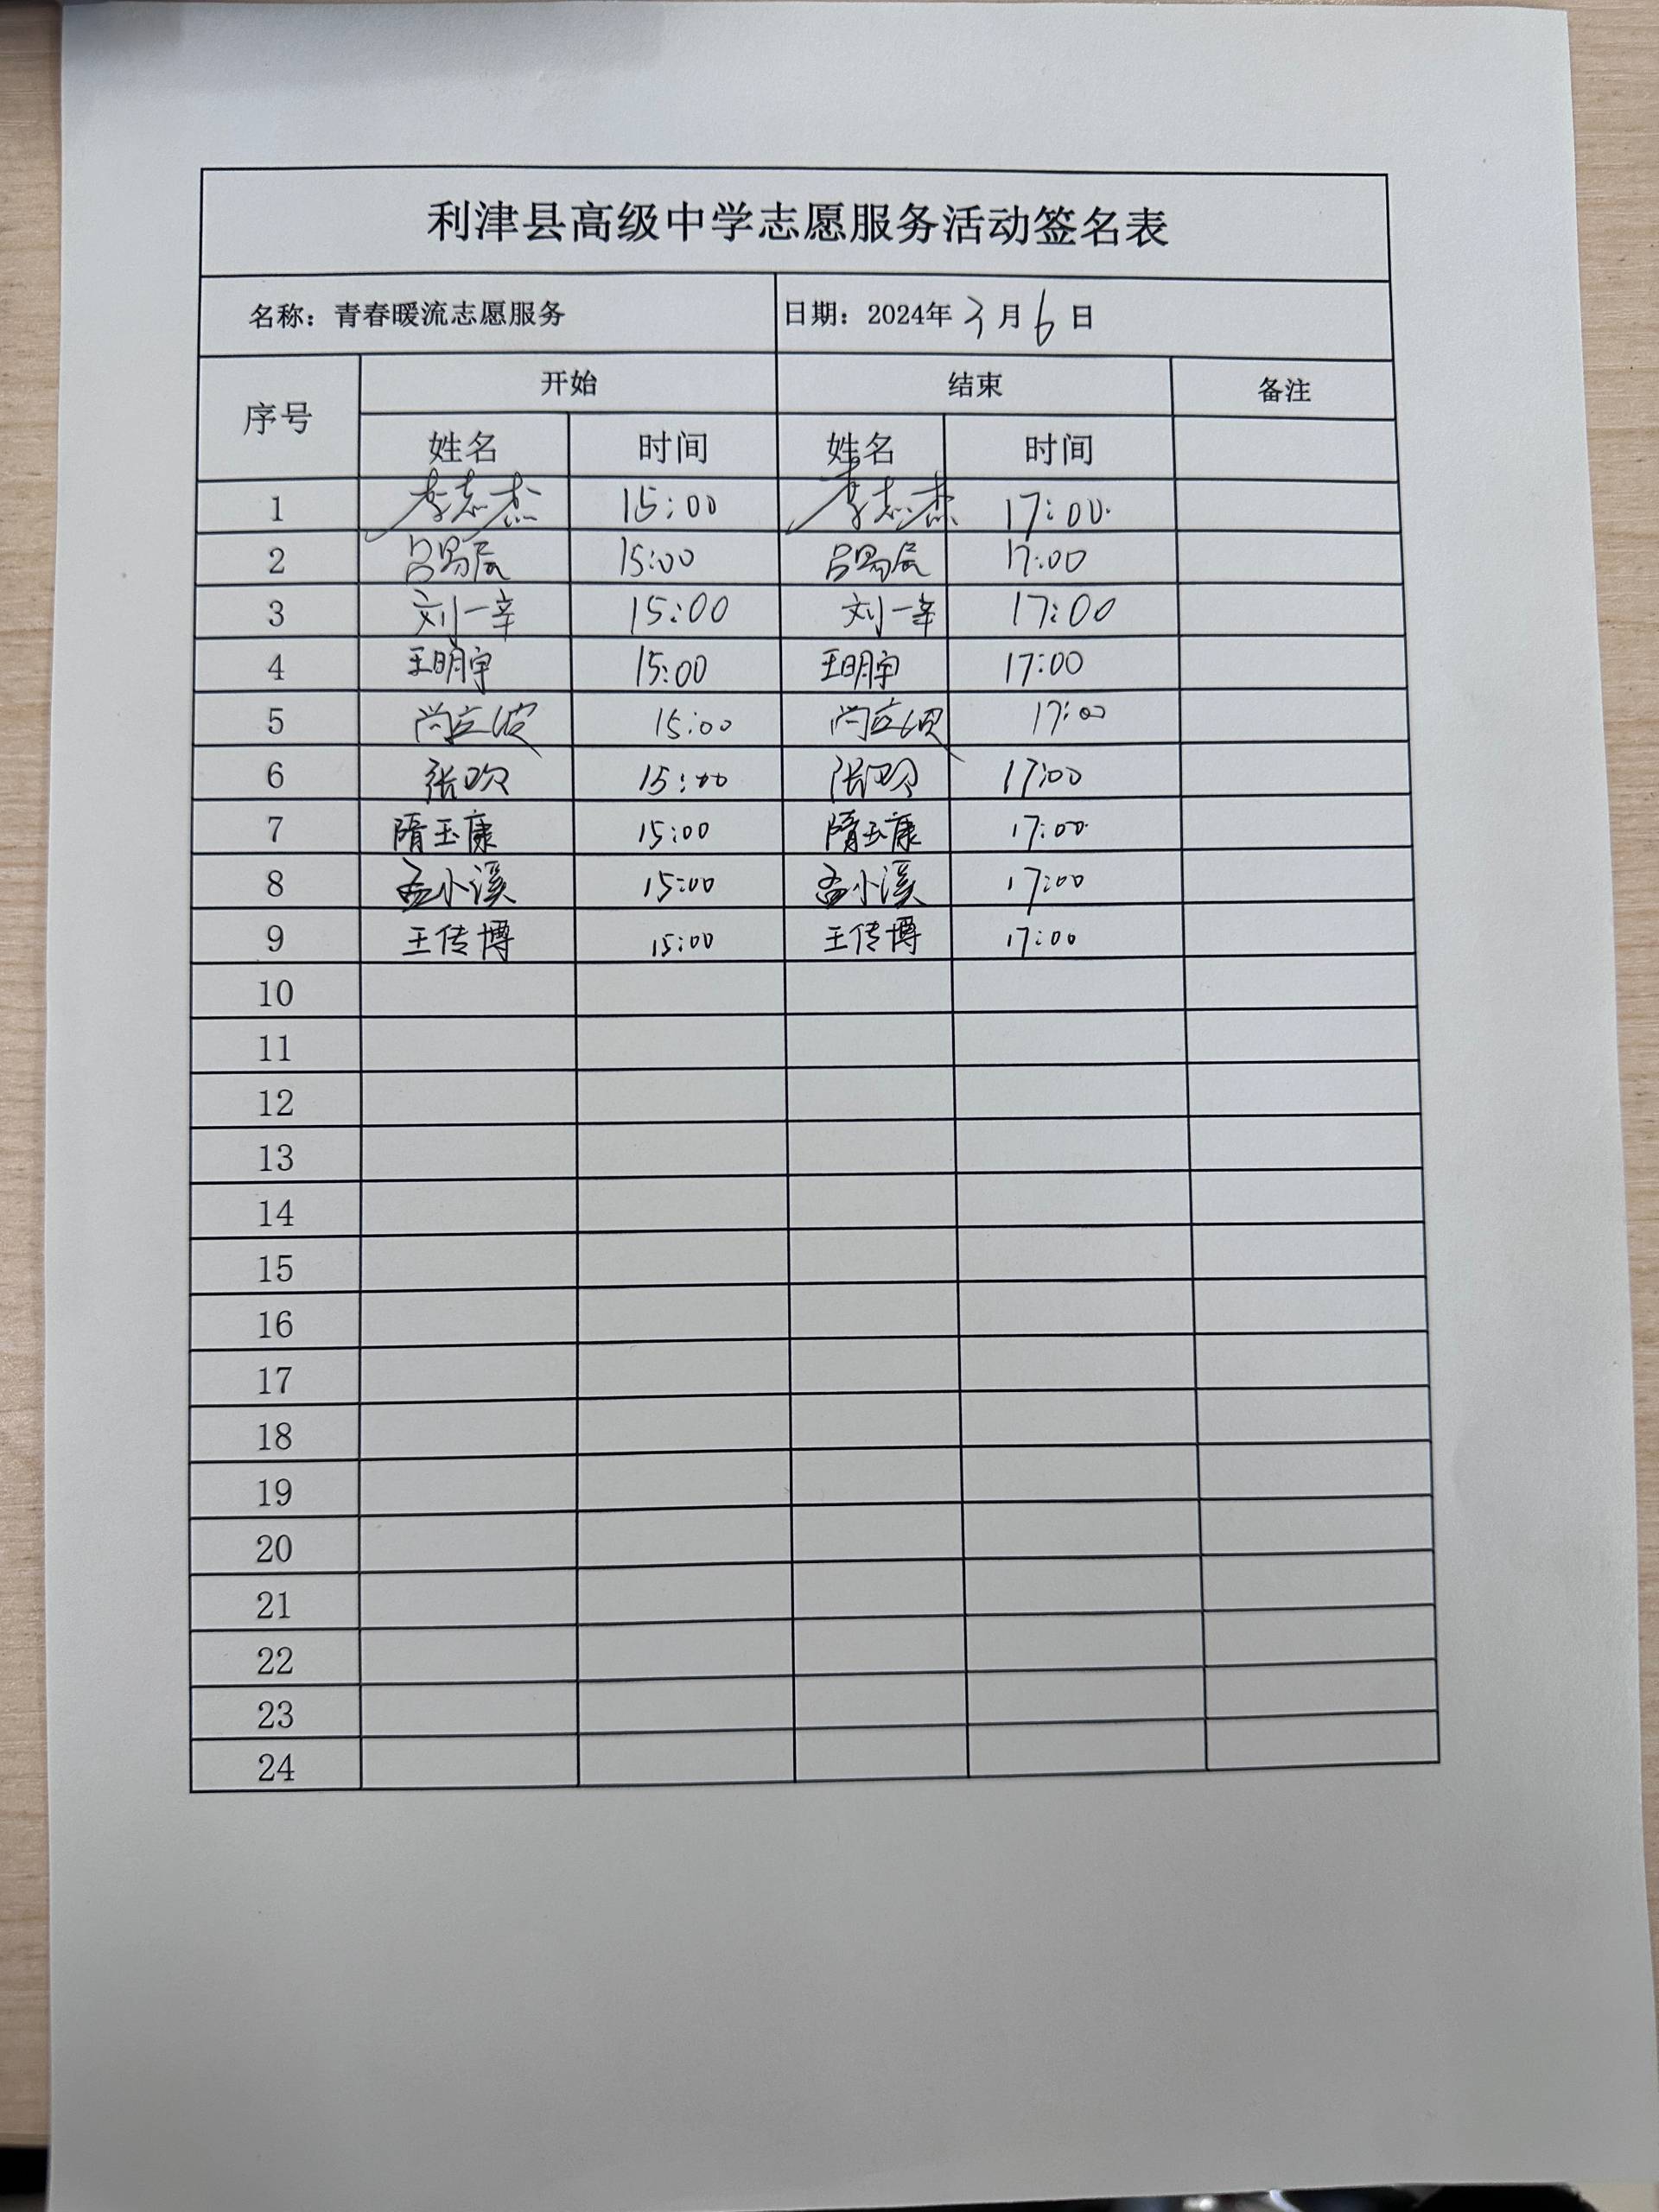 利津县高级中学志愿服务活动签名表
名称：青春暖流志愿服务 日期：2024年 3 月 6 日
序号 开始 结束 备注
姓名 时间 姓名 时间
1 李志杰 15:00 李志杰 17:00
2 15:00 17:00
3 刘一辛 15:00 刘一辛 17:00
4 王明宇 15:00 王明宇 17:00
5 15:00 17:00
6 15:00 17:00
7 隋玉康 15:00 隋玉康 17:00
8 孟小溪 15:00 孟小溪 17:00
9 王传博 15:00 王传博 17:00
10
11
12
13
14
15
16
17
18
19
20
21
22
23
24